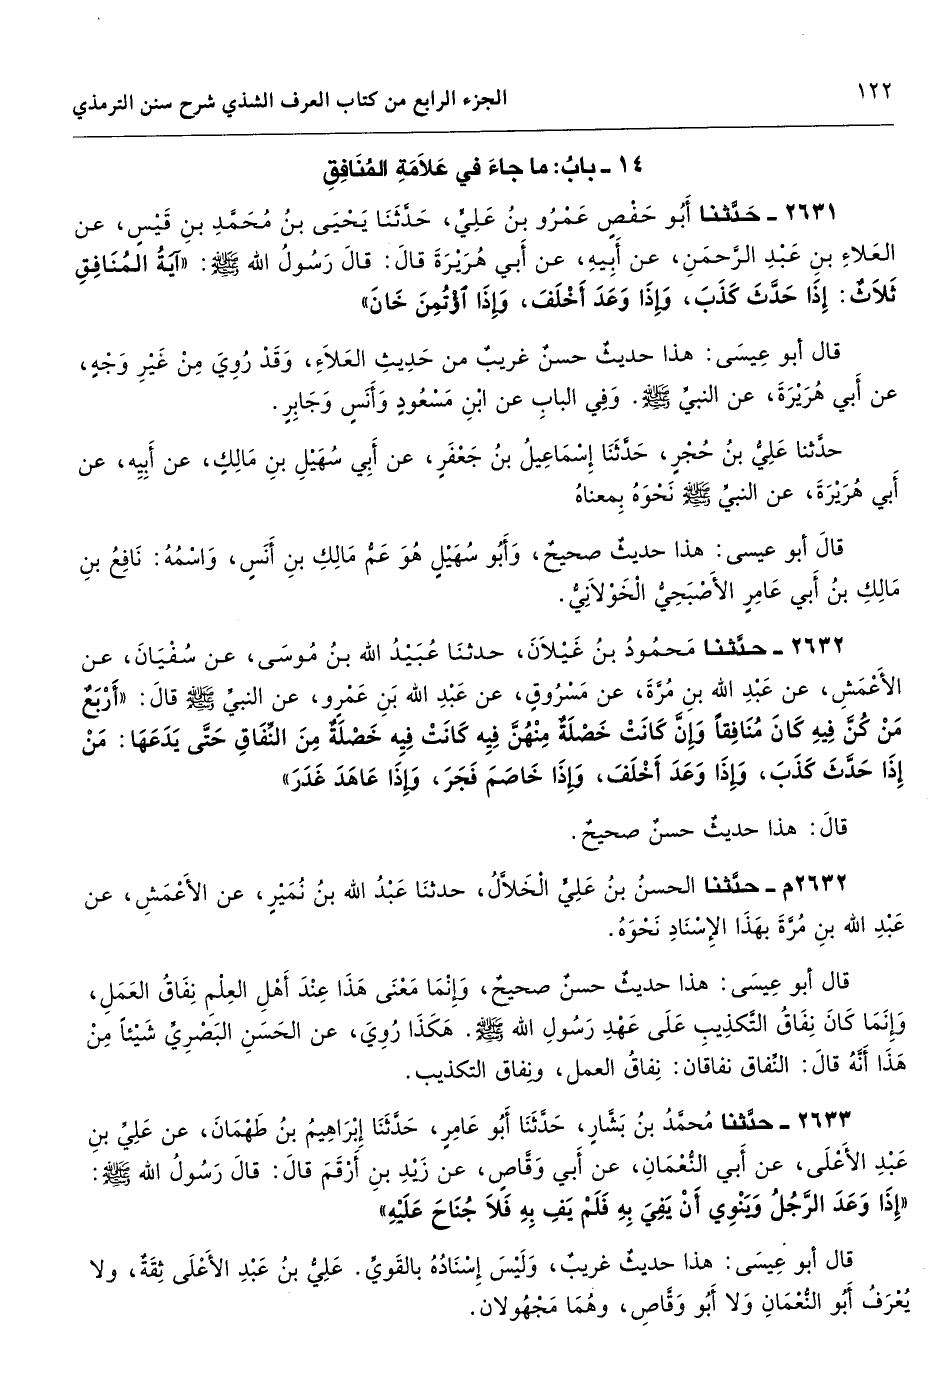 ١٢٢
الجزء الرابع من كتاب العرف الشذي شرح سنن الترمذي
١٤ ـ بابُ: ما جاءَ في عَلاَمَةِ المُنَافِقِ
٢٦٣١ ـ حَدَّثنا أَبُو حَفْصٍ عَمْرُو بنُ عَلِيٍّ، حَدَّثَنَا يَحْيَى بنُ مُحَمَّدِ بنِ قَيْسٍ، عن
العَلاءِ بنِ عَبْدِ الرَّحمَنِ، عن أَبِيهِ، عن أَبي هُرَيْرَةَ قالَ: قالَ رَسُولُ الله ﷺ: «آيَةُ المُنَافِقِ
ثَلاَثٌ: إِذَا حَدَّثَ كَذَبَ، وَإِذَا وَعَدَ أَخْلَفَ، وَإِذَا ٱؤْتُمِنَ خَانَ»
قال أبو عِيسَى: هذا حديثٌ حسنٌ غريبٌ من حَدِيثِ العَلاَءِ، وَقَدْ رُوِيَ مِنْ غَيْرِ وَجْهٍ،
عن أَبي هُرَيْرَةَ، عن النبيِّ ﷺ. وَفِي البابِ عن ابْنِ مَسْعُودٍ وَأَنَسٍ وَجَابِرٍ.
حدَّثنا عَلِيُّ بنُ حُجْرٍ، حَدَّثَنَا إِسْمَاعِيلُ بنُ جَعْفَرٍ، عن أَبي سُهَيْلِ بنِ مَالِكٍ، عن أَبِيِه، عن
أَبي هُرَيْرَةَ، عن النبيِّ ﷺ نَحْوَهُ بِمعناهُ
قالَ أبو عيسى: هذا حديثٌ صحيحٌ، وَأَبُو سُهَيْلٍ هُوَ عَمُّ مَالِكِ بنِ أَنَسٍ، وَاسْمُهُ: نَافِعُ بنِ
مَالِكِ بنُ أَبي عامِرٍ الأَصْبَحِيُّ الْخَوْلاَنِيُّ.
٢٦٣٢ ـ حدَّثنا مَحمُودُ بنُ غَيْلاَنَ، حدثنا عُبَيْدُ الله بنُ مُوسَى، عن سُفْيَانَ، عن
الأَعْمَشِ، عن عَبْدِ الله بنِ مُرَّةَ، عن مَسْرُوقٍ، عن عَبْدِ الله بَنِ عَمْرٍو، عن النبيِّ ﷺ قالَ: «أَرْبَعٌ
مَنْ كُنَّ فِيهِ كَانَ مُنَافِقاً وَإِنَّ كَانَتْ خَصْلَةٌ مِنْهُنَّ فِيِه كَانَتْ فِيِه خَصْلَةٌ مِنَ النِّفَاقِ حَتَّى يَدَعَهَا: مَنْ
إِذَا حَدَّثَ كَذَبَ، وَإِذَا وَعَدَ أَخْلَفَ، وَإِذَا خَاصَمَ فَجَرَ، وَإِذَا عَاهَدَ غَدَرَ»
قالَ: هذا حديثٌ حسنٌ صحيحٌ.
٢٦٣٢م ـ حدَّثنا الحسنُ بنُ عَلِيٍّ الْخَلاَّلُ، حدثنا عَبْدُ الله بنُ نُمَيْرٍ، عن الأَعْمَشِ، عن
عَبْدِ الله بنِ مُرَّةَ بِهَذَا الإِسْنَادِ نَحْوَهُ.
قال أبو عِيسَى: هذا حديثٌ حسنٌ صحيحٌ، وَإِنْمَا مَعْنَى هَذَا عِنْدَ أَهْلِ العِلْمِ نِفَاقُ العَمَلِ،
وَإِنَمَا كَانَ نِفَاقُ التَّكذِيبِ عَلَى عَهْدِ رَسُولِ الله ﷺ. هَكَذَا رُوِيَ، عن الحَسَنِ البَصْرِيِّ شَيْئاً مِنْ
هَذَا أَنَّهُ قالَ: النَّفاق نفاقان: نِفاقُ العمل، ونِفاق التكذيب.
٢٦٣٣ ـ حدَّثنا مُحمَّدُ بنُ بَشَّارٍ، حَدَّثَنَا أَبُو عَامِرٍ، حَدَّثَنَا إِبْرَاهِيمُ بنُ طَهْمَانَ، عن عَلِيِّ بنِ
عَبْدِ الأَعْلَى، عن أَبي النُّعْمَانِ، عن أَبي وَقَّاصٍ، عن زَيْدِ بنِ أَرْقَمَ قالَ: قالَ رَسُولُ الله ﷺ:
«إِذَا وَعَدَ الرَّجُلُ وَيَنْوِي أَنْ يَفِيَ بِهِ فَلَمْ يَفِ بِهِ فَلاَ جُنَاحَ عَلَيْهِ»
قال أبو عِيسَى: هذا حديثٌ غريبٌ، وَلَيْسَ إِسْنَادُهُ بالقَويِّ. عَلِيُّ بنُ عَبْدِ الأَعْلَى ثِقَةٌ، ولا
يُعْرَفُ أَبُو النُّعْمَانِ وَلا أَبُو وَقَّاصٍ، وهُمَا مَجْهُولان.